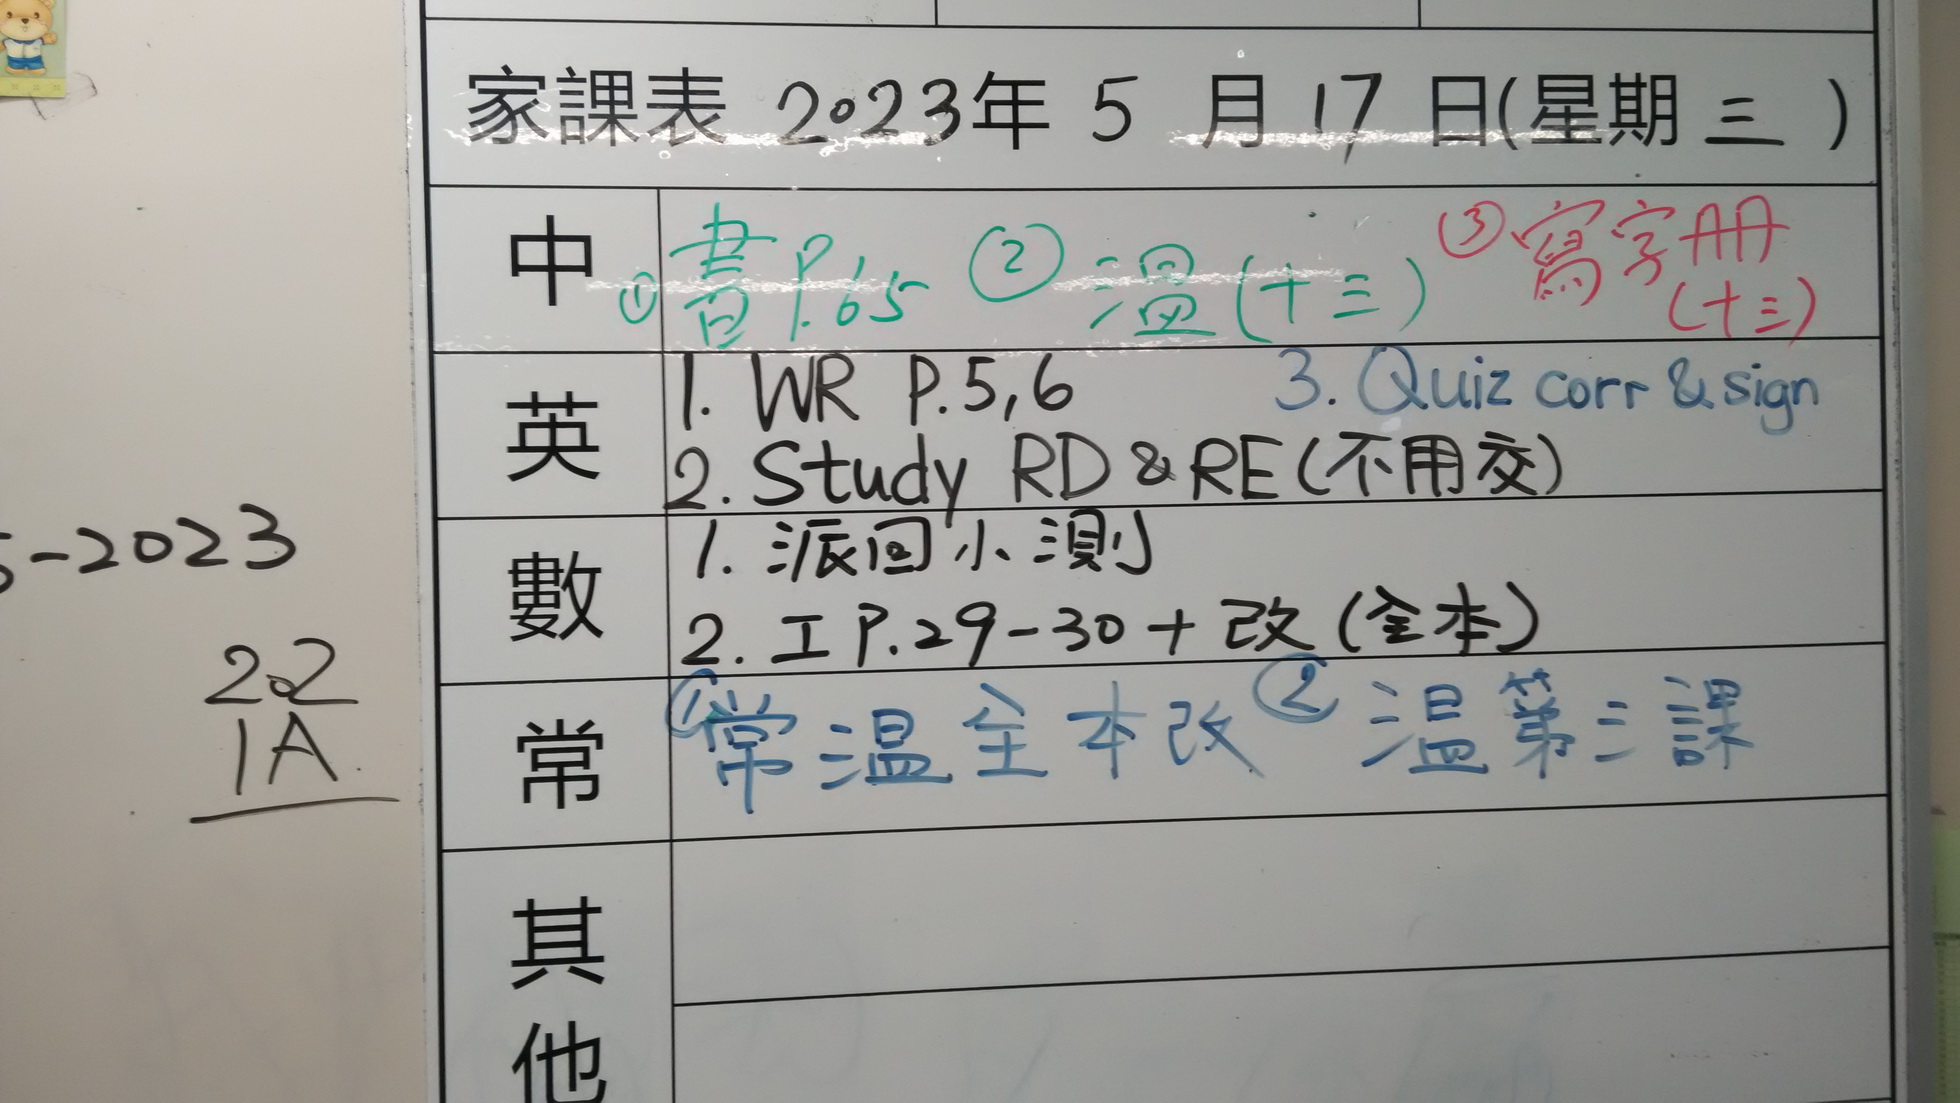 家課表 2023年 5 月 17 日(星期 三 )
中
① 書 P.65 ② 温(十三) ③ 寫字册
(十三)
英
1. WR P.5,6 3. Quiz corr & sign
2. Study RD & RE (不用交)
數
1. 派回小測
2. 工 P.29-30 + 改 (全本)
常
① 常温全本改 ② 温第三課
其
他
5-2023
202
1A